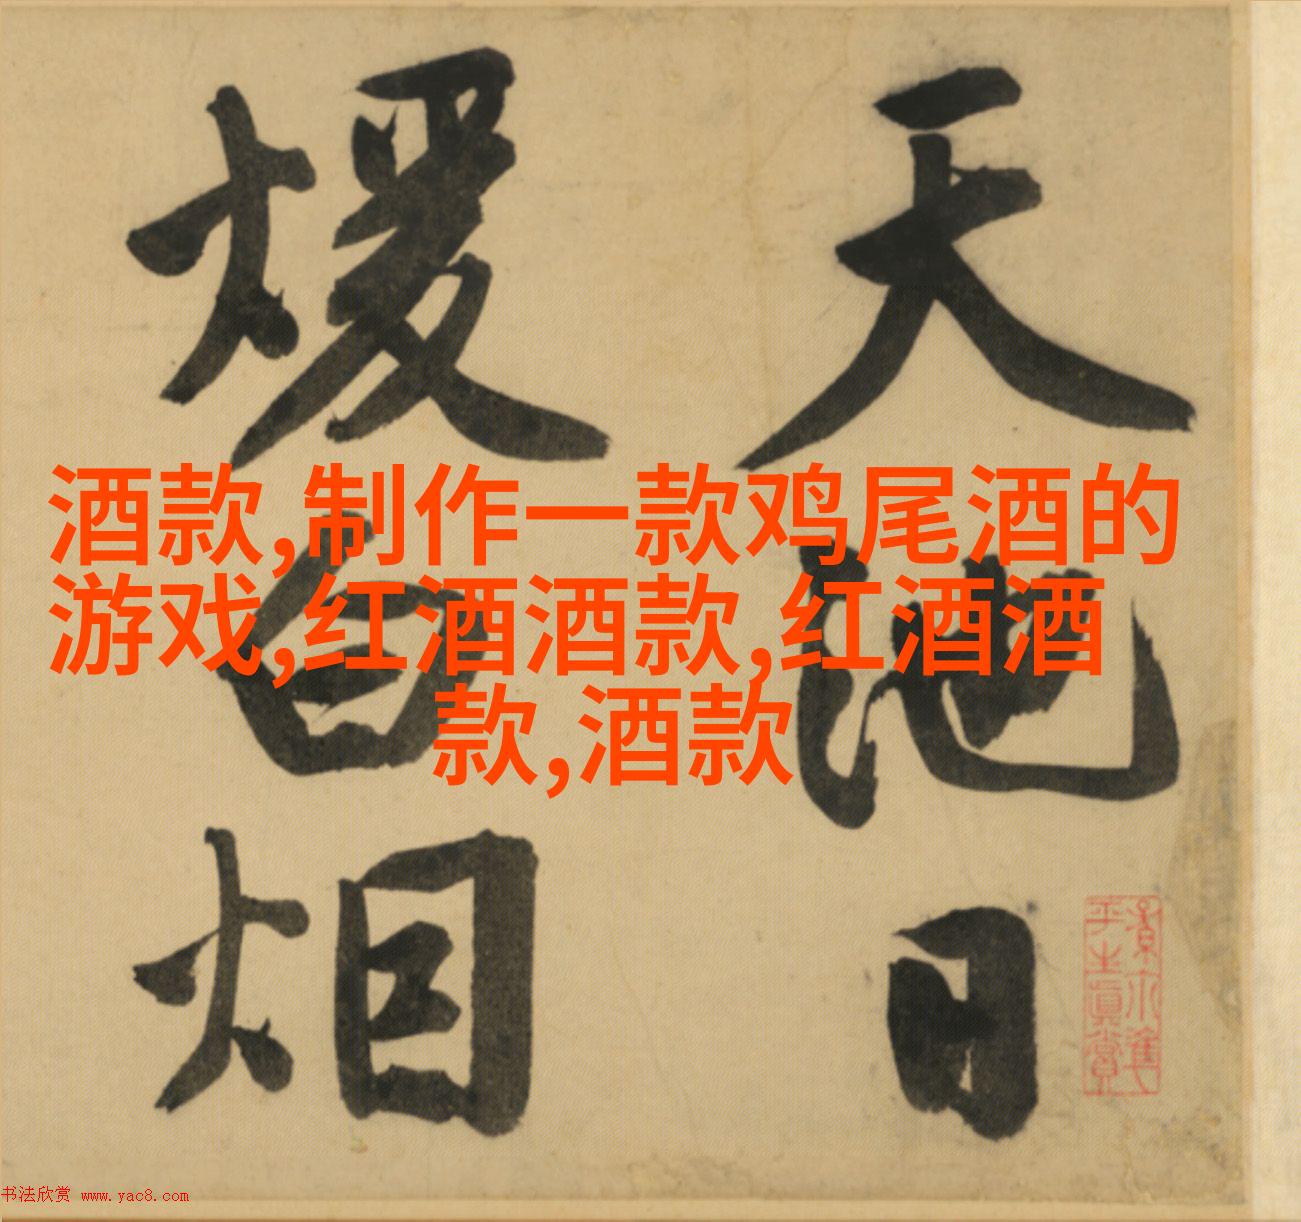 天地日
煖白烟
酒款,制作一款鸡尾酒的
游戏,红酒酒款,红酒酒
款,酒款
书法欣赏 www.yac8.com